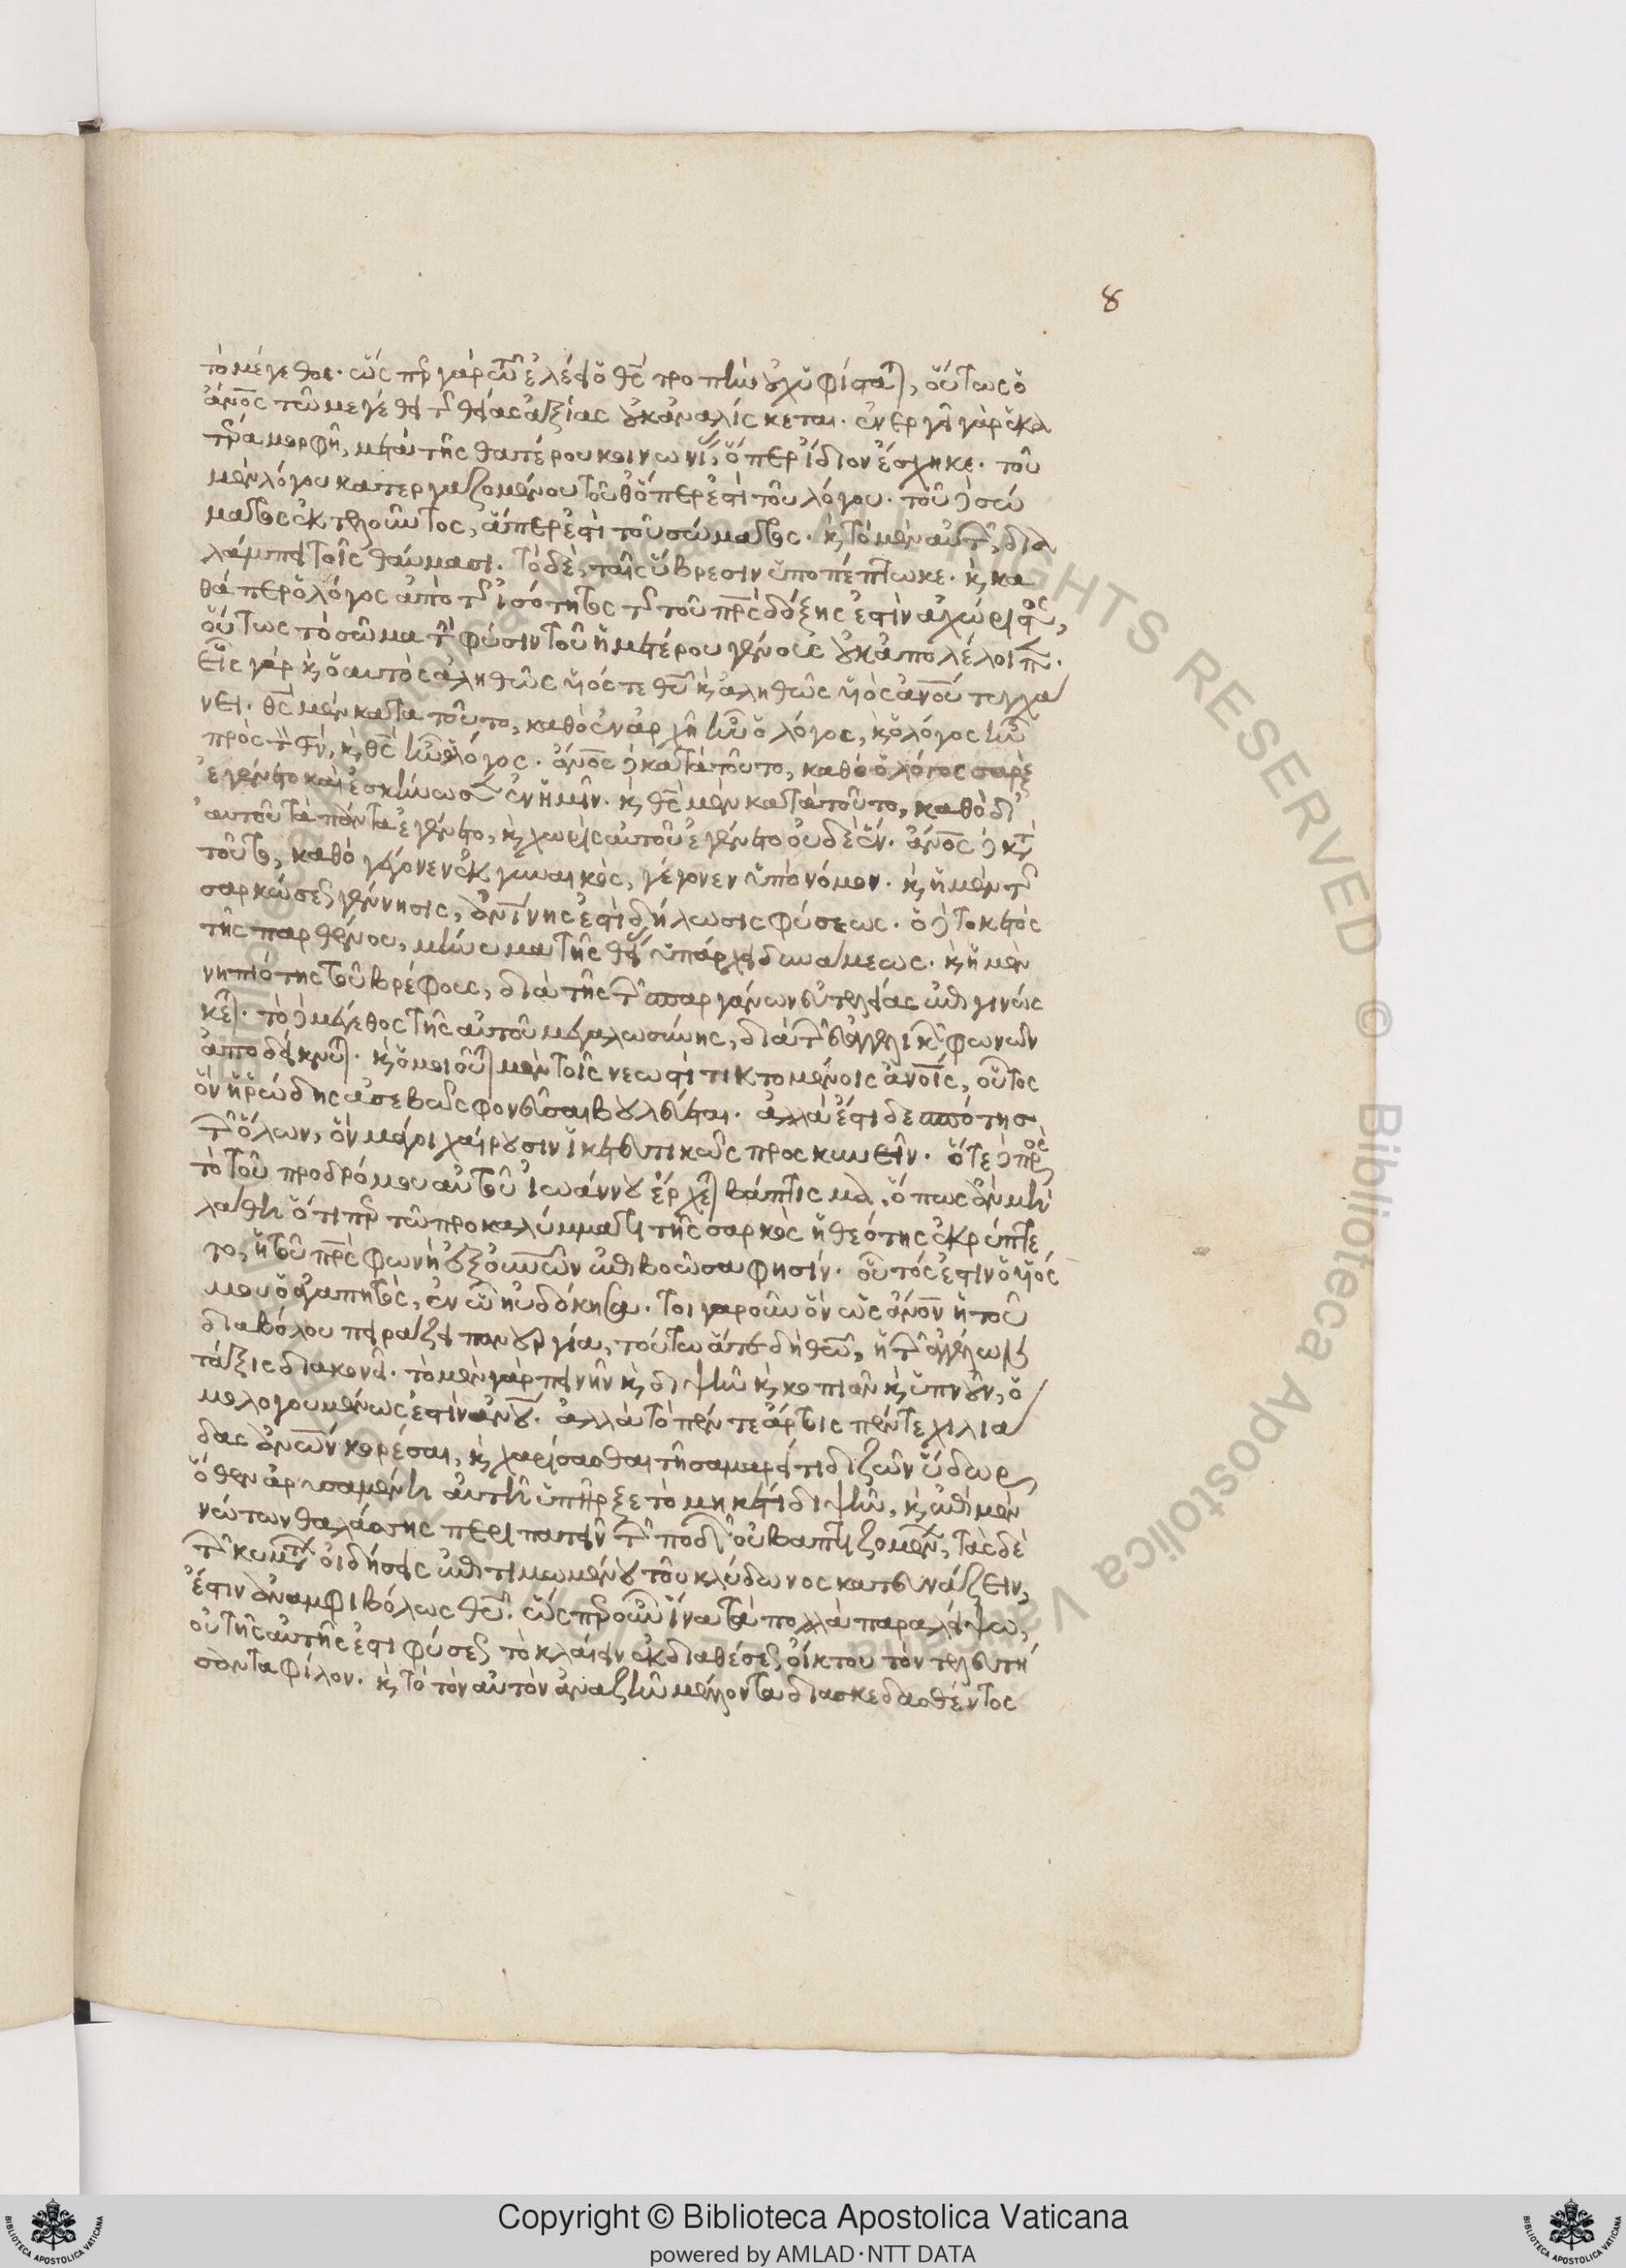 8
τὸ μέγεθος. ὥσπερ γὰρ ὢν ἐλέει ὁ θς τροπὴν οὐχ ὑφίσταται, οὕτως ὁ
ἄνος τῶ μεγέθει τῆς θείας ἀξίας οὐκ ἀναλίσκεται. ἐνεργεῖ γὰρ ἑκα
τέρα μορφὴ, μετὰ τῆς θατέρου κοινωνίας, ὅπερ ἴδιον ἔσχηκε. τοῦ
μὲν λόγου κατεργαζομένου τοῦθ' ὅπερ ἐστὶ τοῦ λόγου. τοῦ δὲ σώ
ματος ἐκτελοῦντος, ἅπερ ἐστὶ τοῦ σώματος. καὶ τὸ μὲν αὐτῶν, δια
λάμπει τοῖς θαύμασι. τὸ δὲ, ταῖς ὕβρεσιν ὑποπέπτωκε. καὶ κα
θάπερ ὁ λόγος ἀπὸ τῆς ἰσότητος τῆς τοῦ πρς δόξης ἐστὶν ἀχώριστος,
οὕτως τὸ σῶμα τὴν φύσιν τοῦ ἡμετέρου γένους οὐκ ἀπολέλοιπεν.
εἷς γὰρ καὶ ὁ αὐτὸς ἀληθῶς υἱός τε θῦ καὶ ἀληθῶς υἱὸς ἀνου τυγχά
νει. θς μὲν κατὰ τοῦτο, καθὸ ἐν ἀρχῇ ἦν ὁ λόγος, καὶ ὁ λόγος ἦν
πρὸς τὸν θν, καὶ θς ἦν ὁ λόγος. ἄνος δὲ κατὰ τοῦτο, καθὸ ὁ λόγος σαρξ
ἐγένετο καὶ ἐσκήνωσεν ἐν ἡμῖν. καὶ θς μὲν κατὰ τοῦτο, καθὸ δι'
αὐτοῦ τὰ πάντα ἐγένετο, καὶ χωρὶς αὐτοῦ ἐγένετο οὐδὲ ἕν. ἄνος δὲ κατὰ
τοῦτο, καθὸ γέγονεν ἐκ γυναικὸς, γέγονεν ὑπὸ νόμον. καὶ ἡ μὲν τῆς
σαρκώσεως γέννησις, ἀνίνης ἐστὶ δήλωσις φύσεως. ὁ δὲ τοκετὸς
τῆς παρθένου, μήνυμα τῆς θείας ὑπάρχει δυνάμεως. καὶ ἡ μὲν
νηπιότης τοῦ βρέφους, διὰ τῆς τῶν σπαργάνων εὐτελείας ἐπιγινώσ
κεται. τὸ δὲ μέγεθος τῆς αὐτοῦ μεγαλωσύνης, διὰ τῶν ἀγγελικῶν φωνῶν
ἀποδείκνυται. καὶ ὁμοιοῦται μὲν τοῖς νεωστὶ τικτομένοις ἀνοις, οὗτος
ὃν ἡρώδης ἀσεβῶς φονεῦσαι βουλεύεται. ἀλλὰ ἔστι δεσπότης
τῶν ὅλων, ὃν μάγοι χαίρουσιν ἱκετευτικῶς προσκυνεῖν. ὅτε δὲ πρὸς
τὸ τοῦ προδρόμου αὐτοῦ ἰωάννου ἔρχεται βάπτισμα, ὅπως ἂν μὴ
λάθη ὅτιπερ τῶ προκαλύμματι τῆς σαρκὸς ἡ θεότης ἐκρύπτε
το, ἡ τοῦ πρς φωνὴ ἐξ οὐνῶν ἐπιβοῶσα φησίν. οὗτός ἐστιν ὁ υἱός
μου ὁ ἀγαπητὸς, ἐν ᾧ ηὐδόκησα. τοιγαροῦν ὃν ὡς ἄνον ἡ τοῦ
διαβόλου πειράζει πανουργία, τούτω ἅτε δὴ θεῶ, ἡ τῶν ἀγγέλων
τάξις διακονεῖ. τὸ μὲν γὰρ πεινῆν καὶ διψῆν καὶ κοπιᾶν καὶ ὑπνοῦν, ὁ
μολογουμένως ἐστὶν ἀνου. ἀλλὰ τὸ πέντε ἄρτοις πέντε χιλιά
δας ἀνων κορέσαι, καὶ χαρίσασθαι τῇ σαμαρείτιδι ζῶν ὕδωρ
ὅθεν ἀρυσαμένη αὐτῇ ὑπῆρξε τὸ μηκέτι διψῆν, καὶ ἐπὶ μὲν
νώτων θαλάσσης περιπατεῖν τῶν ποδῶν οὐ βαπτιζομένων, τὰς δὲ
τῶν κυμάτων οἰδήσεις ἐπιτιμωμένου τοῦ κλύδωνος κατευνάζειν,
ἔστιν ἀναμφιβόλως θῦ. ὥσπερ οὖν ἵνα τὰ πολλὰ παραλείψω,
οὐ τῆς αὐτῆς ἐστι φύσεως τὸ κλαίειν ἐκ διαθέσεως οἴκτου τὸν τελευτή
σαντα φίλον. καὶ τὸ τὸν αὐτὸν ἀναζῆν μέλλοντα διασκεδασθέντος
Copyright © Biblioteca Apostolica Vaticana
powered by AMLAD·NTT DATA